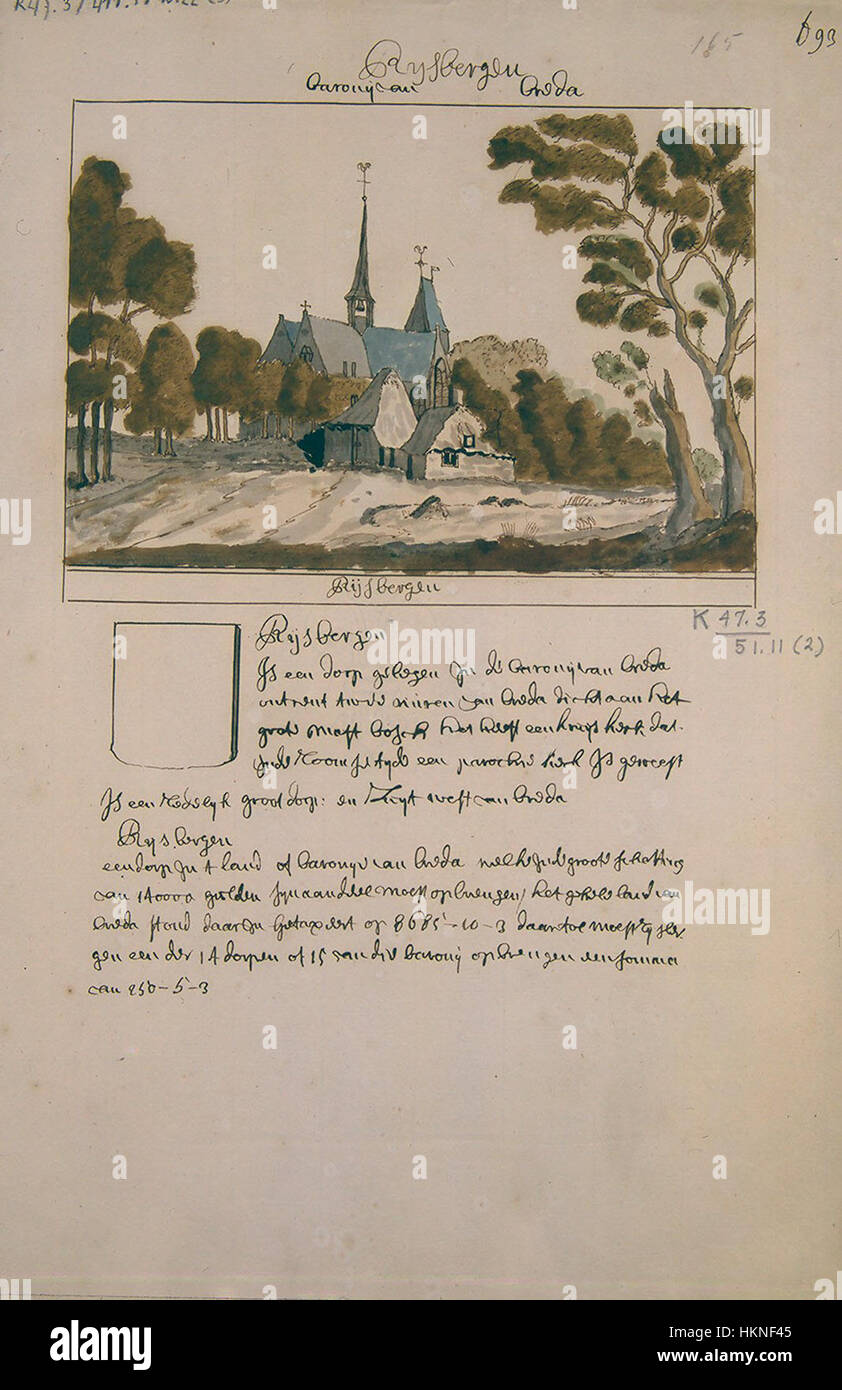 K47.3/
165
693
Rijsbergen
baronij van breda
Rijsbergen
K 47.3
51.11 (2)
Rijsbergen
Is een dorp gelegen In de baronij van breda
ontrent twee uuren van breda dicht aan het
grote mast bosch het heeft een kruys kerk dat
In de Roomse tyde een parochie kerk Is geweest
Is een Redelyk groot dorp: en Zuyt west van breda
Rijsbergen
een dorp In t land of baronye van breda welke In de groote schatting
van 14000 gulden syn aandeel moest opbrengen / het geheele land van
breda stond daar In getaxeert op 8685-10-3 daar toe moest rysber
gen een der 14 dorpen of 15 van die baronij opbrengen een somma
van 250-5-3
alamy stock photo
HKNF45
www.alamy.com